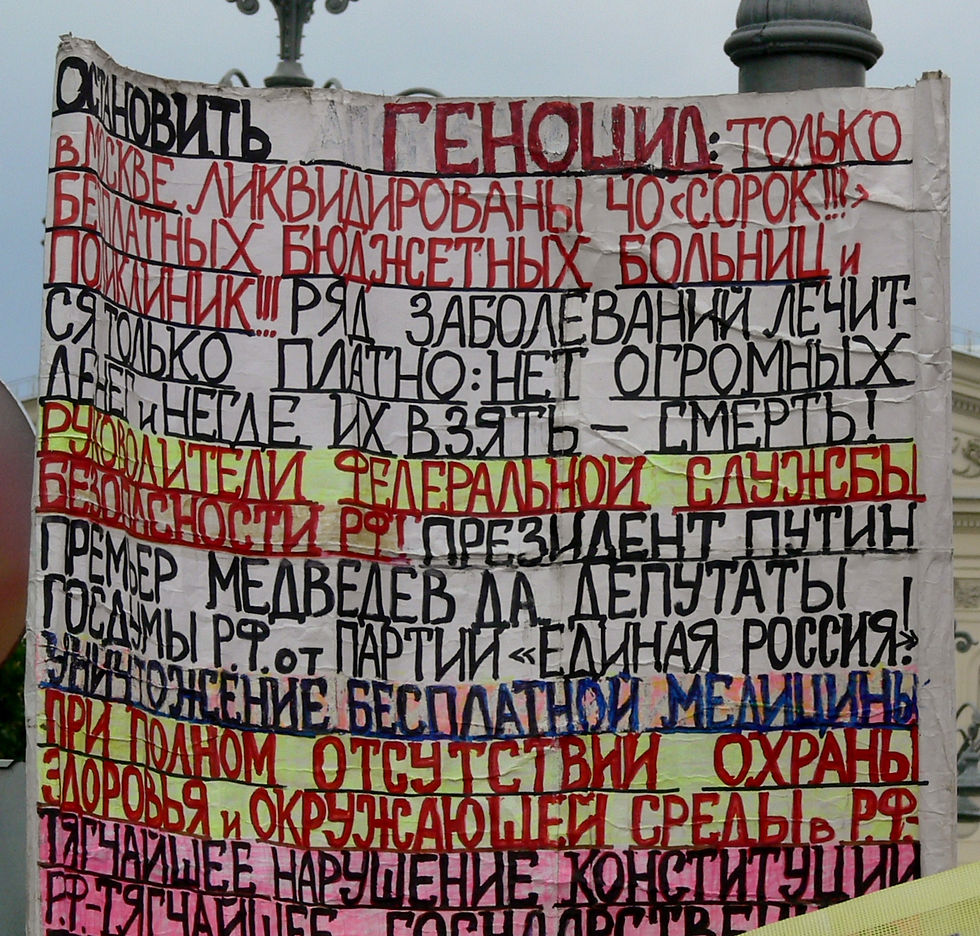 ОСТАНОВИТЬ ГЕНОЦИД: ТОЛЬКО
в МОСКВЕ ЛИКВИДИРОВАНЫ 40 «СОРОК!!!»
БЕСПЛАТНЫХ БЮДЖЕТНЫХ БОЛЬНИЦ и
ПОЛИКЛИНИК!!! РЯД ЗАБОЛЕВАНИЙ ЛЕЧИТ-
СЯ ТОЛЬКО ПЛАТНО: НЕТ ОГРОМНЫХ
ДЕНЕГ и НЕГДЕ ИХ ВЗЯТЬ – СМЕРТЬ!
РУКОВОДИТЕЛИ ФЕДЕРАЛЬНОЙ СЛУЖБЫ
БЕЗОПАСНОСТИ РФ! ПРЕЗИДЕНТ ПУТИН
ПРЕМЬЕР МЕДВЕДЕВ ДА ДЕПУТАТЫ
ГОСДУМЫ Р.Ф. от ПАРТИИ «ЕДИНАЯ РОССИЯ»!
УНИЧТОЖЕНИЕ БЕСПЛАТНОЙ МЕДИЦИНЫ
ПРИ ПОЛНОМ ОТСУТСТВИИ ОХРАНЫ
ЗДОРОВЬЯ и ОКРУЖАЮЩЕЙ СРЕДЫ в РФ-
ТЯГЧАЙШЕЕ НАРУШЕНИЕ КОНСТИТУЦИИ
Р.Ф-ТЯГЧАЙШЕЕ